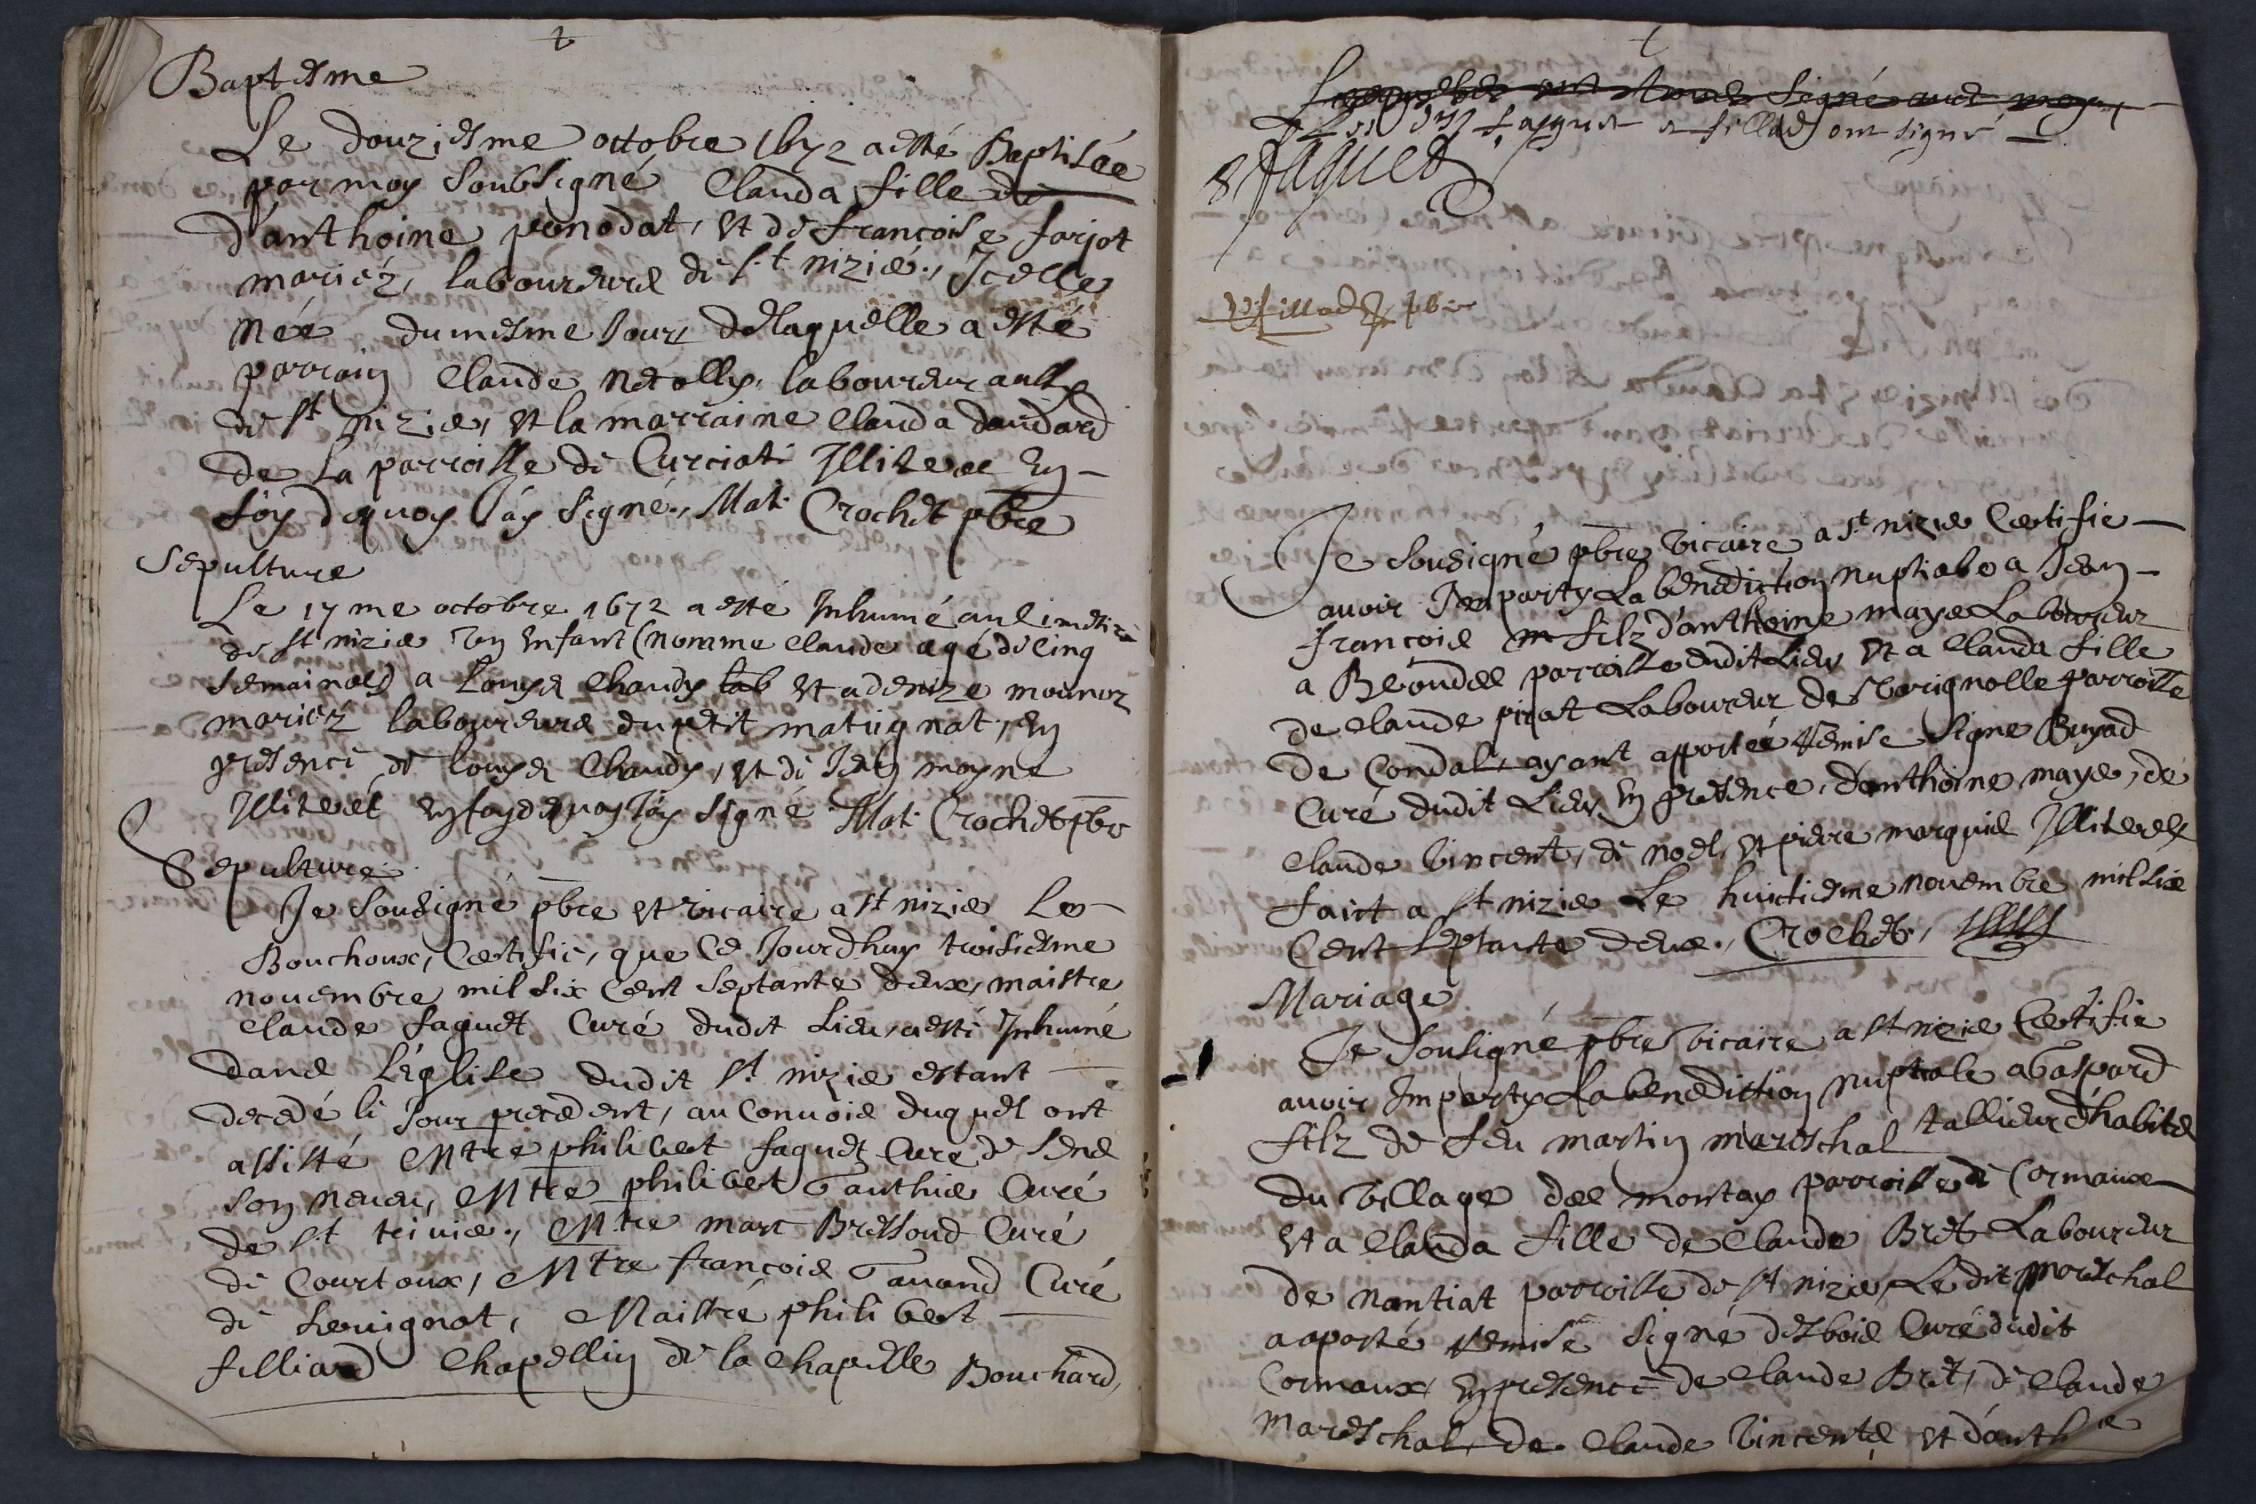 Baptesme
Le douziesme octobre 1672 a esté Baptisée
par moy soubsigné Clauda fille de
d'anthoine ponodat, et de françoise farjot
mariéz, laboureurs de st nizie, Icelle
née du mesme Jour, de laquelle a esté
parrain Claude laboureur aussy
de st nizie, et la marraine Clauda dandard
de la parroisse de Curciat Illiterez En
foy dequoy J'ay signé, Mat. Crochet pbre
Sepulture
Le 17me octobre 1672 a esté Inhumé au Cimetiere
de st nizie un enfant (nomme Claude agé de cinq
semaines) a Louys Chaudy lab et a denize mounoz
mariéz laboureurs du petit matignat, en
presence de louys Chaudy, et de Jean moyne
Illiterés en foy dequoy J'ay signé Mat. Crochet pbre
Sepulture
Je Sousigné pbre et vicaire a st nizie Les
Bouchoux, Certifie, que Ce Jourdhuy troisiesme
nouembre mil six Cent Septante deux, maistre
Claude faguet Curé dudit Lieu, a esté Inhumé
dans L'église dudit st. nizie estant
decedé le Jour precedent, au Convois duquel ont
assisté Mtre philibert faguet Curé de Sens
son neveu, Mtre philibert Gauthier Curé
de st triuier, Mtre marc Bressoud Curé
de Courtoux, Mtre françois Gauand Curé
de Seruignat, Maistre philibert
filliard Chapellin de la Chapelle Bouchard,
faguet et filliad ont signé
faguet
filliad pbre
Je Sousigné pbre vicaire a st nizie Certifie
avoir Imparty La benediction nuptiale a Jean
françois m filz d'anthoine maye Laboureur
a Beondes parroisse dudit Lieu et a Clauda fille
de Claude pirat Laboureur de Varignolle parroisse
de Condal, ayant apportée remise signe Buyad
Curé dudit Lieu, en presence, danthoine maye, de
Claude Vincent, de noel, et pierre marquis Illiterés
faict a st nizie Le huictiesme nouembre mil six
Cent septante deux, Crochet,
Mariage
Je Sousigné pbre Vicaire a st nizie Certifie
avoir Imparty La benediction nuptiale a Gaspard
filz de feu martin mareschal tallieur d'habits
du Village des montay parroisse de Cormaux
et a Clauda fille de Claude Bret Laboureur
de nantiat parroisse de st nizie, Le dit mareschal
a aporté remise signé desbois Curé dudit
Cormaux, En presence de Claude Bret, de Claude
mareschal, de Claude Vincent, et d'anthe